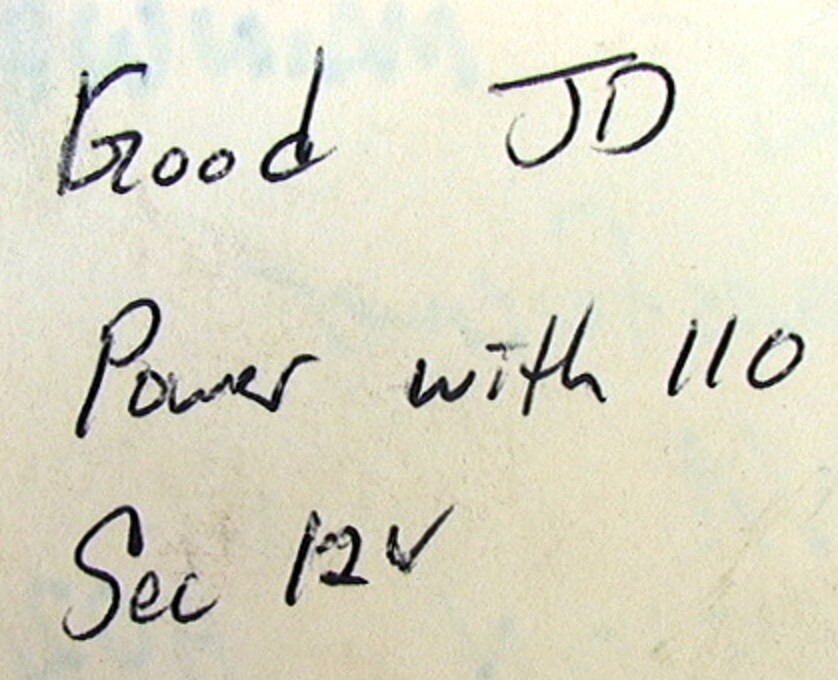 Good JD
Power with 110
Sec 12V